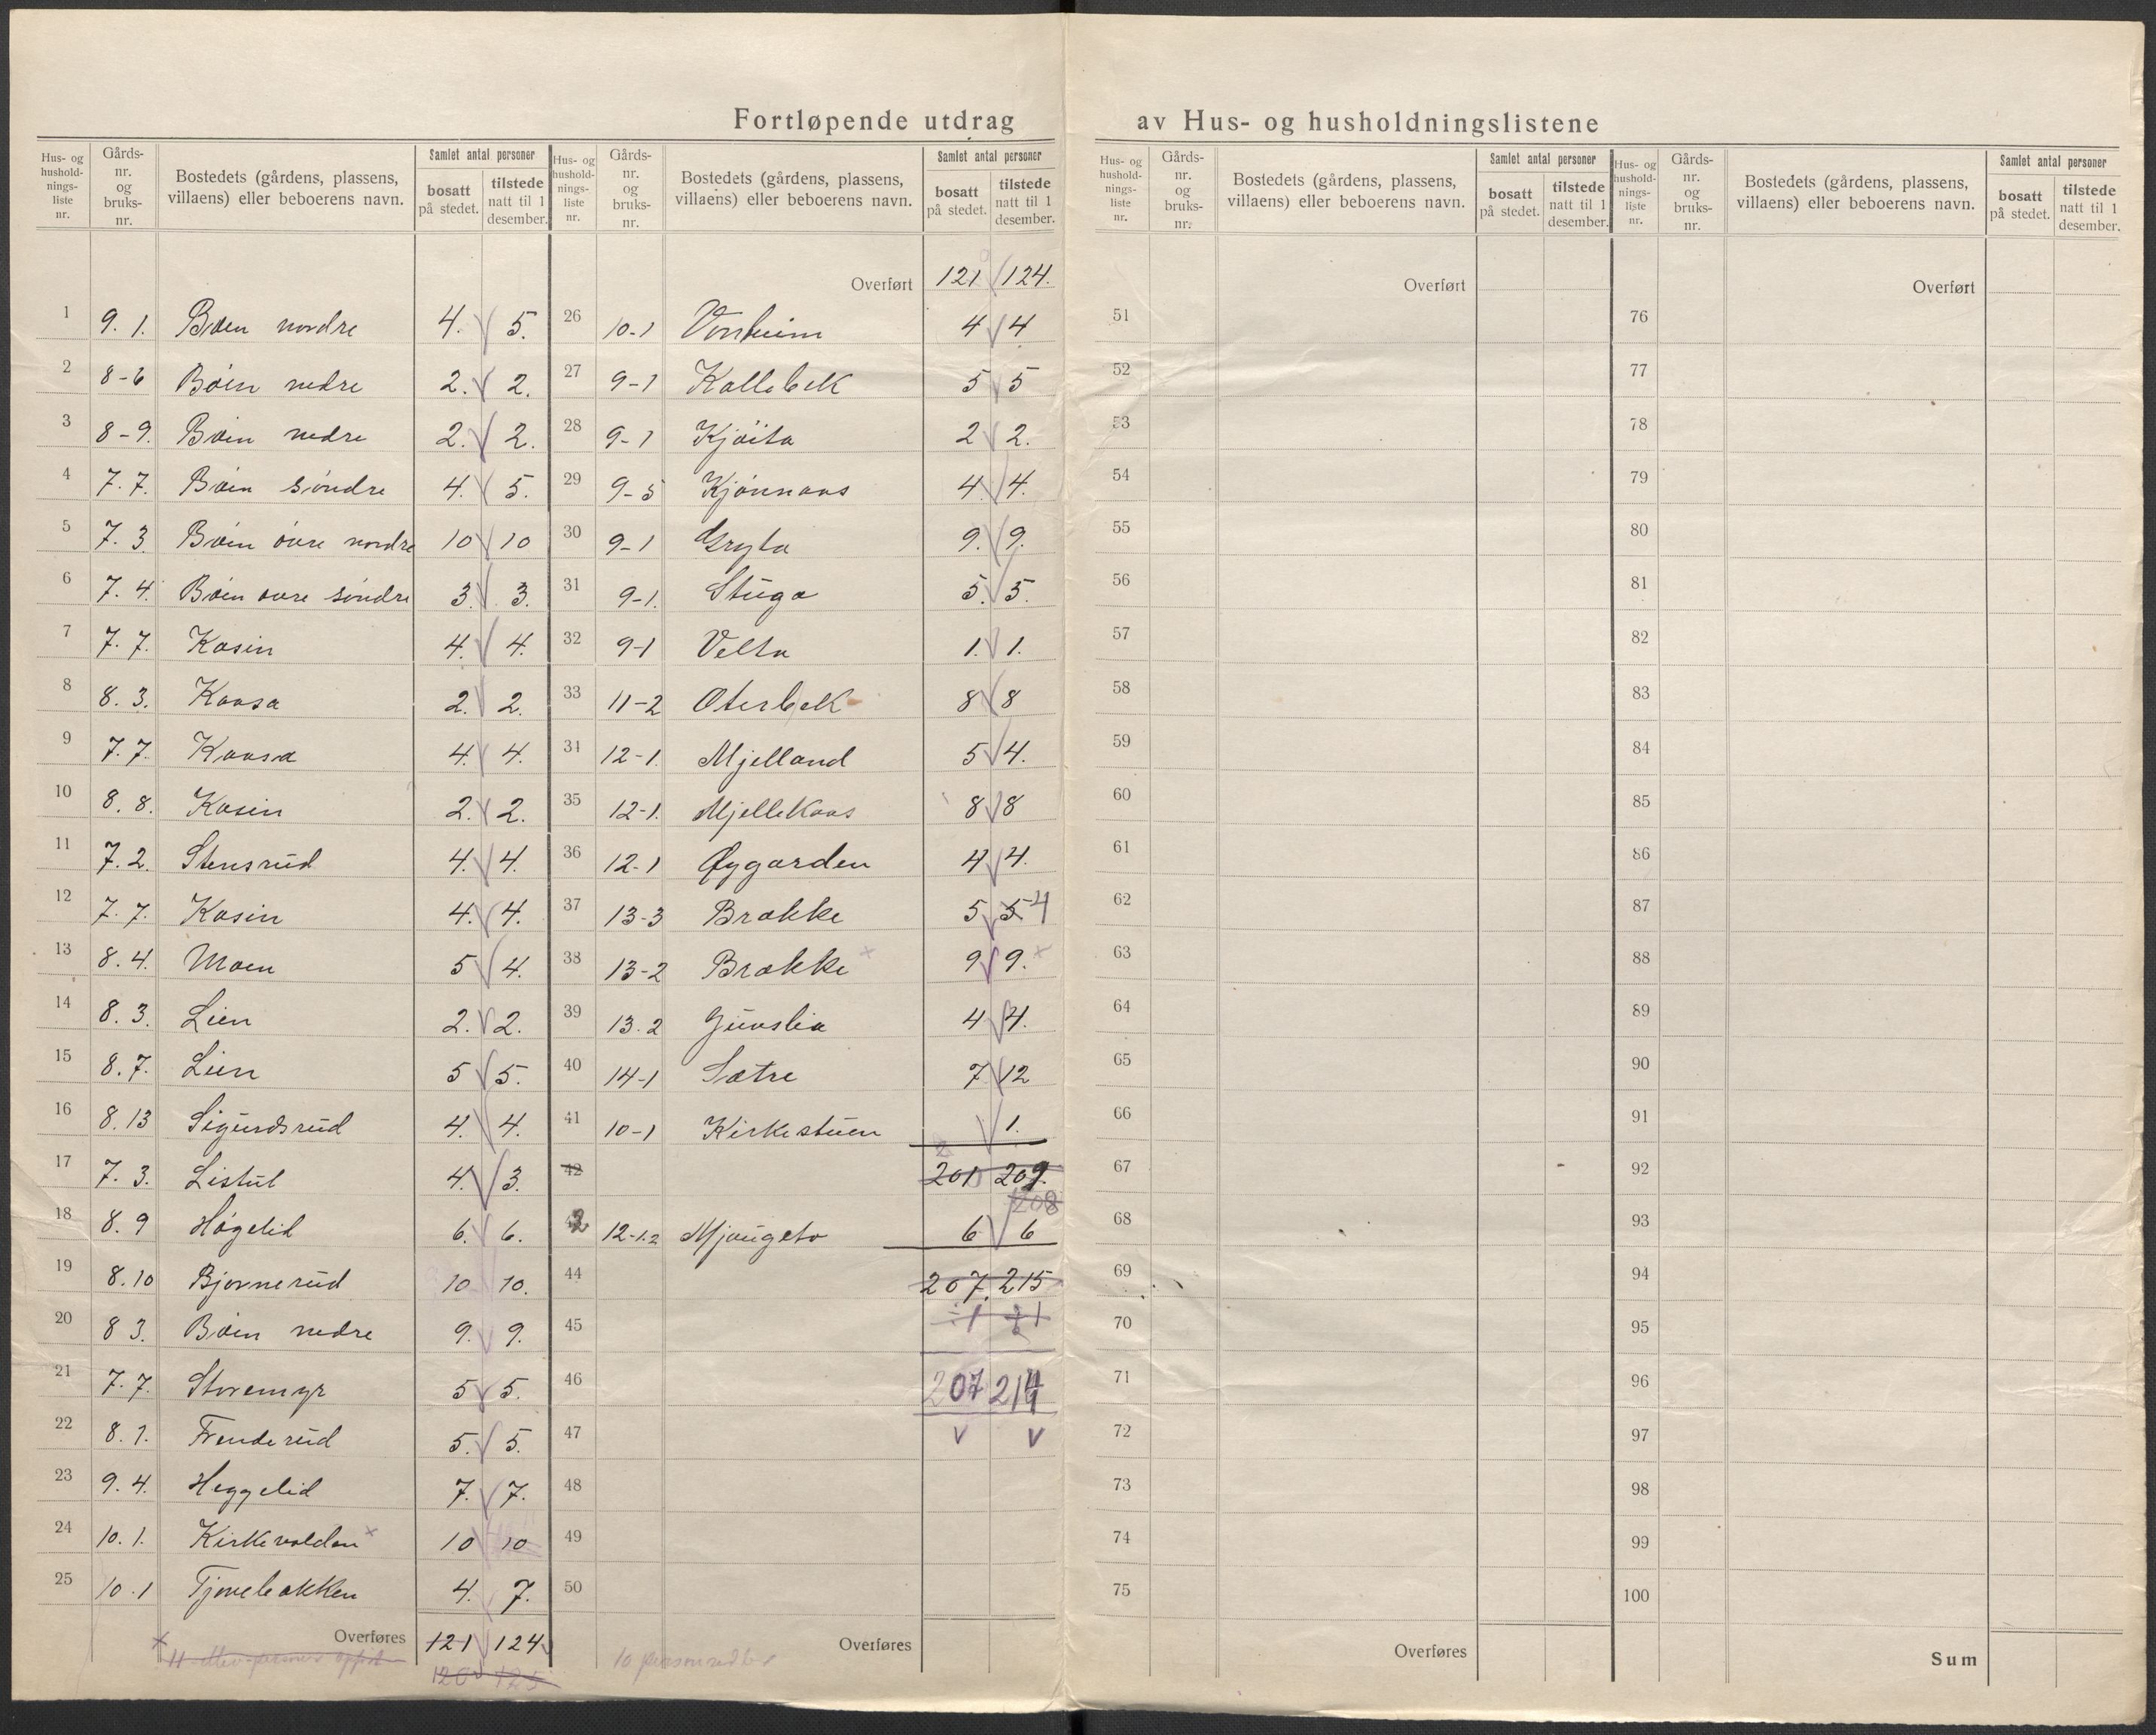 Fortløpende utdrag av Hus- og husholdningslistene
Hus- og husholdnings- liste nr. | Gårds- nr. og bruks- nr. | Bostedets (gårdens, plassens, villaens) eller beboerens navn. | Samlet antal personer | bosatt på stedet. | tilstede natt til 1 desember.
1 9. 1. Bøen nordre 4. 5.
2 8-6 Bøen nedre 2. 2.
3 8-9. Bøen nedre 2. 2.
4 7. 7. Bøen søndre 4. 5.
5 7. 3. Bøen øvre nordre 10 10
6 7. 4. Bøen øvre søndre 3. 3.
7 7. 7. Kasin 4. 4.
8 8. 3. Kaasa 2. 2.
9 7. 7. Kaasa 4. 4.
10 8. 8. Kasin 2. 2.
11 7. 2. Stensrud 4. 4.
12 7. 7. Kasin 4. 4.
13 8. 4. Moen 5 4.
14 8. 3. Lien 2. 2.
15 8. 7. Lien 5 5.
16 8. 13 Sigurdsrud 4. 4.
17 7. 3. Listul 4. 3.
18 8. 9 Høgelid 6. 6.
19 8. 10 Bjørnerud 10 10.
20 8 3. Bøen nedre 9. 9.
21 7. 7. Storemyr 5 5.
22 8. 1. Frenderud 5. 5.
23 9. 4. Heggelid 7. 7.
24 10. 1. Kirkevolden x 10 10
25 10. 1 Tjønebakken 4. 7.
Overføres 121 124
120 125
Hus- og husholdnings- liste nr. | Gårds- nr. og bruks- nr. | Bostedets (gårdens, plassens, villaens) eller beboerens navn. | Samlet antal personer | bosatt på stedet. | tilstede natt til 1 desember.
Overført 121 124.
26 10-1 Vonheim 4 4
27 9-1 Kallebek 5 5
28 9-1 Kjøita 2 2.
29 9-5 Kjønnaas 4. 4.
30 9-1 Gryta 9. 9.
31 9-1. Stuga 5. 5.
32 9-1 Velta 1. 1.
33 11-2 Oterbek 8 8
34 12-1. Mjelland 5 4.
35 12-1. Mjellekaas 8 8
36 12-1 Øygarden 4 4.
37 13-3 Brække 5 5 4
38 13-2 Brække x 9 9. x
39 13. 2 4 4.
40 14-1 Sætre 7 12
41 10-1 Kirkestuen 1.
42 201 209.
2 208
43 12-1.2 6 6
44 207. 215
45 ÷1 ÷1
46 207 214
47 v v
48
49
50
Overføres
Hus- og husholdnings- liste nr. | Gårds- nr. og bruks- nr. | Bostedets (gårdens, plassens, villaens) eller beboerens navn. | Samlet antal personer | bosatt på stedet. | tilstede natt til 1 desember.
Overført
51
52
53
54
55
56
57
58
59
60
61
62
63
64
65
66
67
68
69
70
71
72
73
74
75
Overføres
Hus- og husholdnings- liste nr. | Gårds- nr. og bruks- nr. | Bostedets (gårdens, plassens, villaens) eller beboerens navn. | Samlet antal personer | bosatt på stedet. | tilstede natt til 1 desember.
Overført
76
77
78
79
80
81
82
83
84
85
86
87
88
89
90
91
92
93
94
95
96
97
98
99
100
Sum